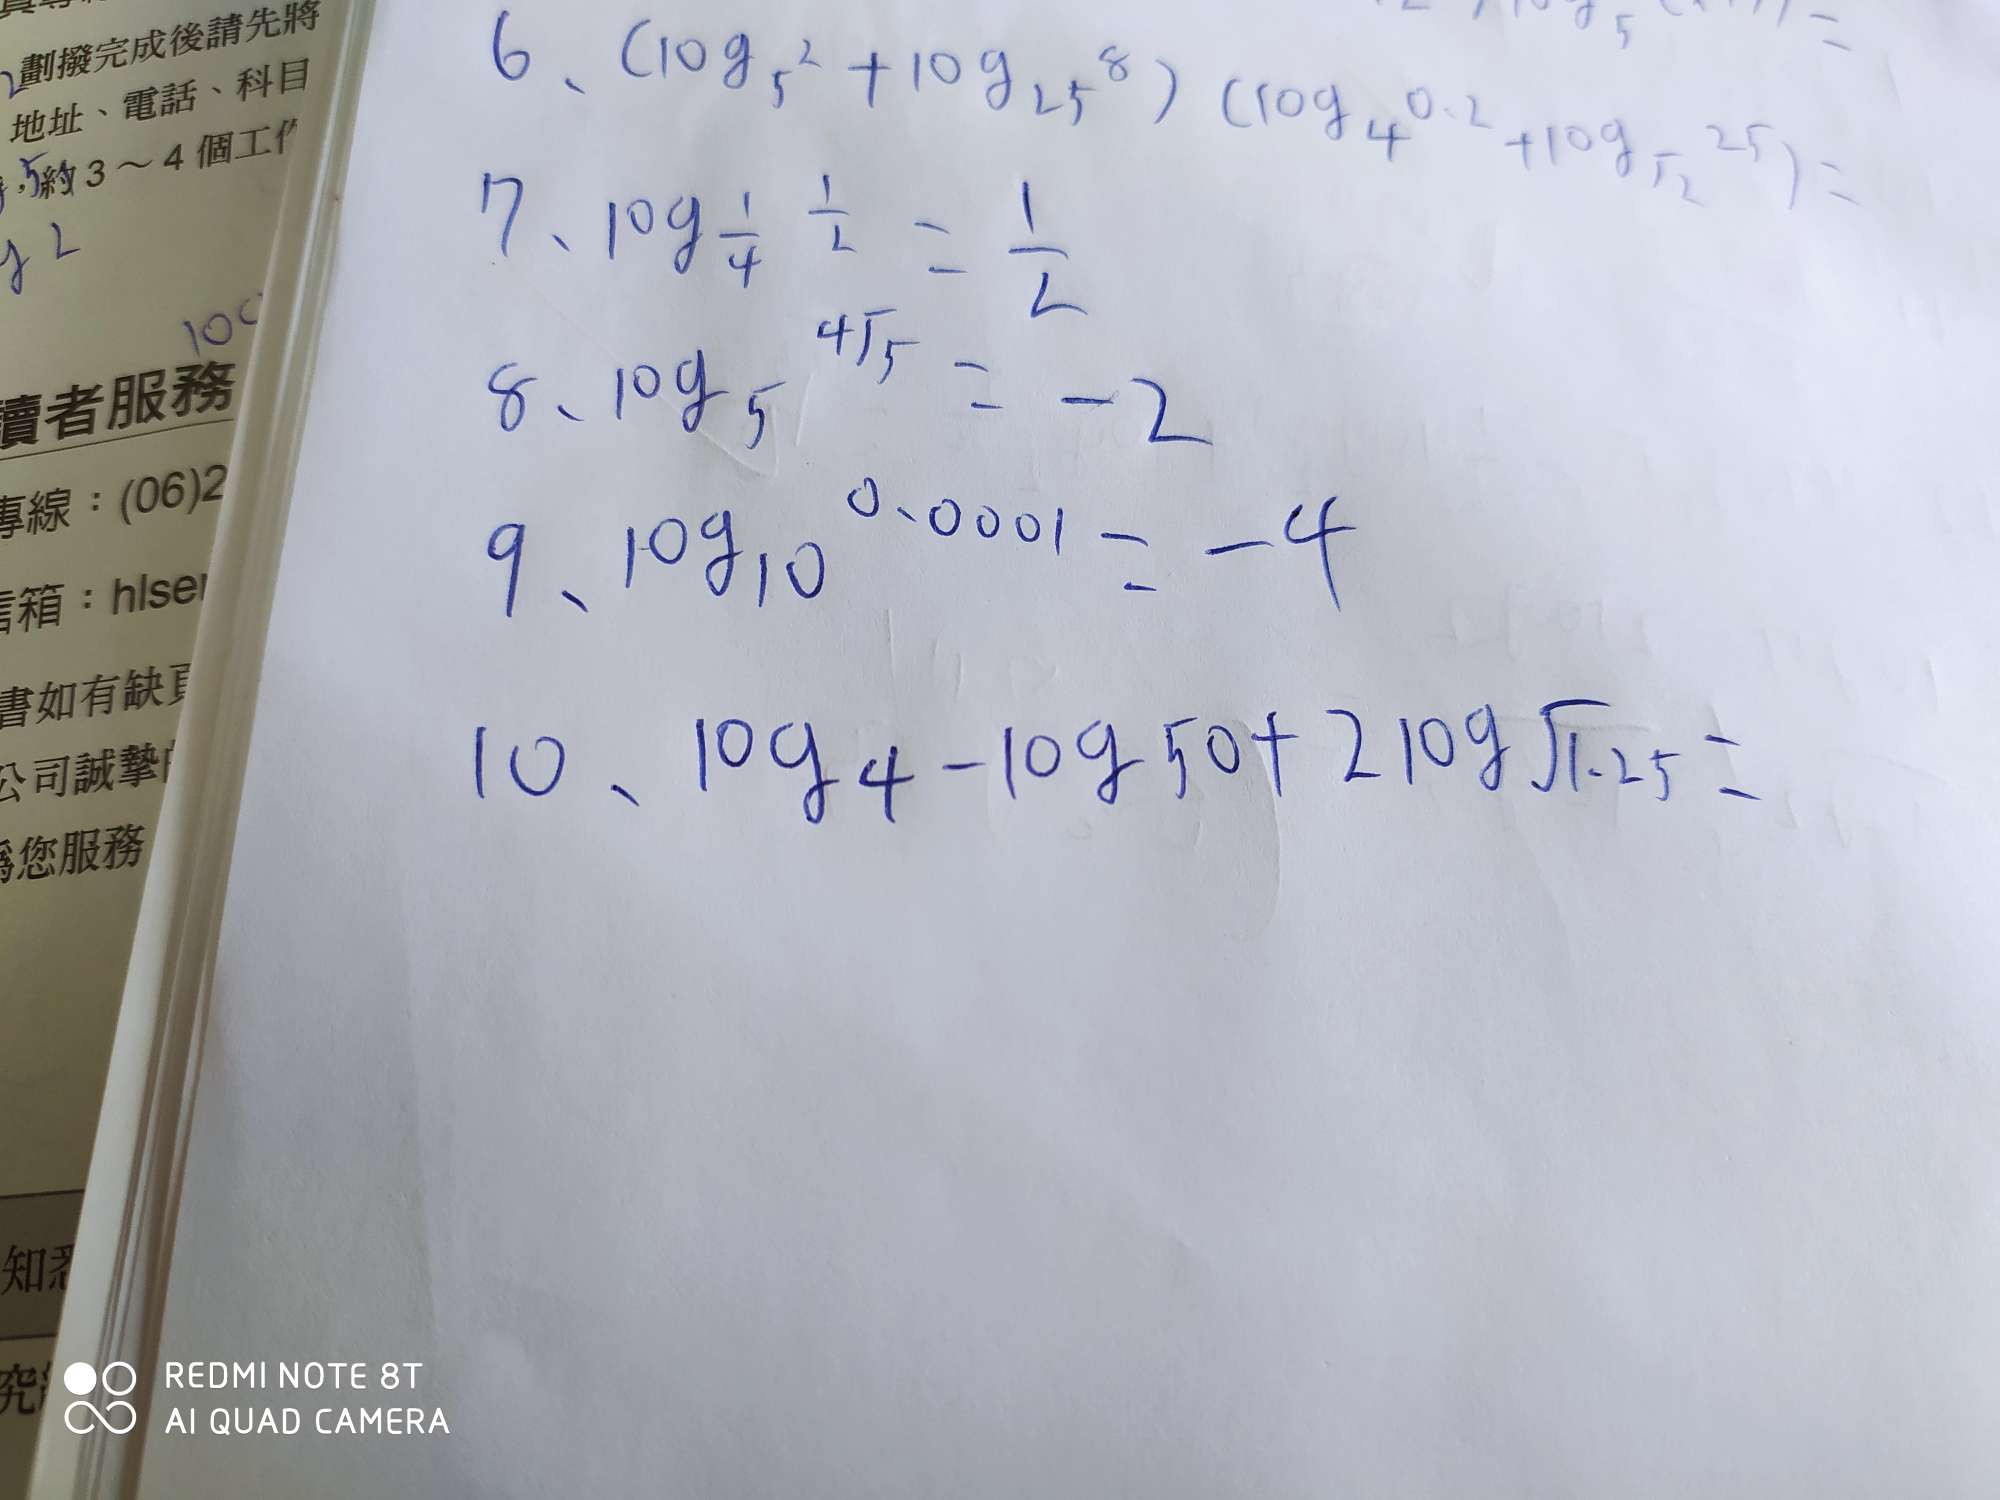 劃撥完成後請先將
地址、電話、科目
約3～4個工作
讀者服務
專線：(06)2
信箱：hlser
書如有缺頁
公司誠摯
為您服務
知悉
6、(log₅² + log₂₅⁸) (log₄^0.2 + log₅₂^25) =
7、log 1/4 1/2 = 1/2
8、log₅ 4√5 = -2
9、log₁₀ 0.0001 = -4
10、log 4 - log 50 + 2 log √1.25 =
REDMI NOTE 8T
AI QUAD CAMERA